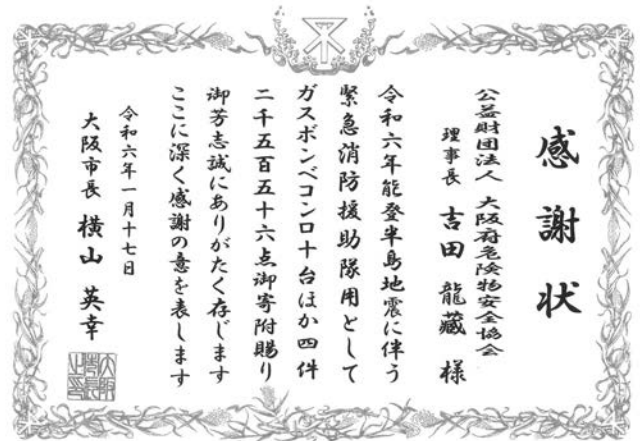 感謝状
公益財団法人 大阪府危険物安全協会
理事長 吉田 龍藏 様
令和六年能登半島地震に伴う
緊急消防援助隊用として
ガスボンベコンロ十台ほか四件
二千五百五十六点御寄附賜り
御芳志誠にありがたく存じます
ここに深く感謝の意を表します
令和六年一月十七日
大阪市長 横山 英幸